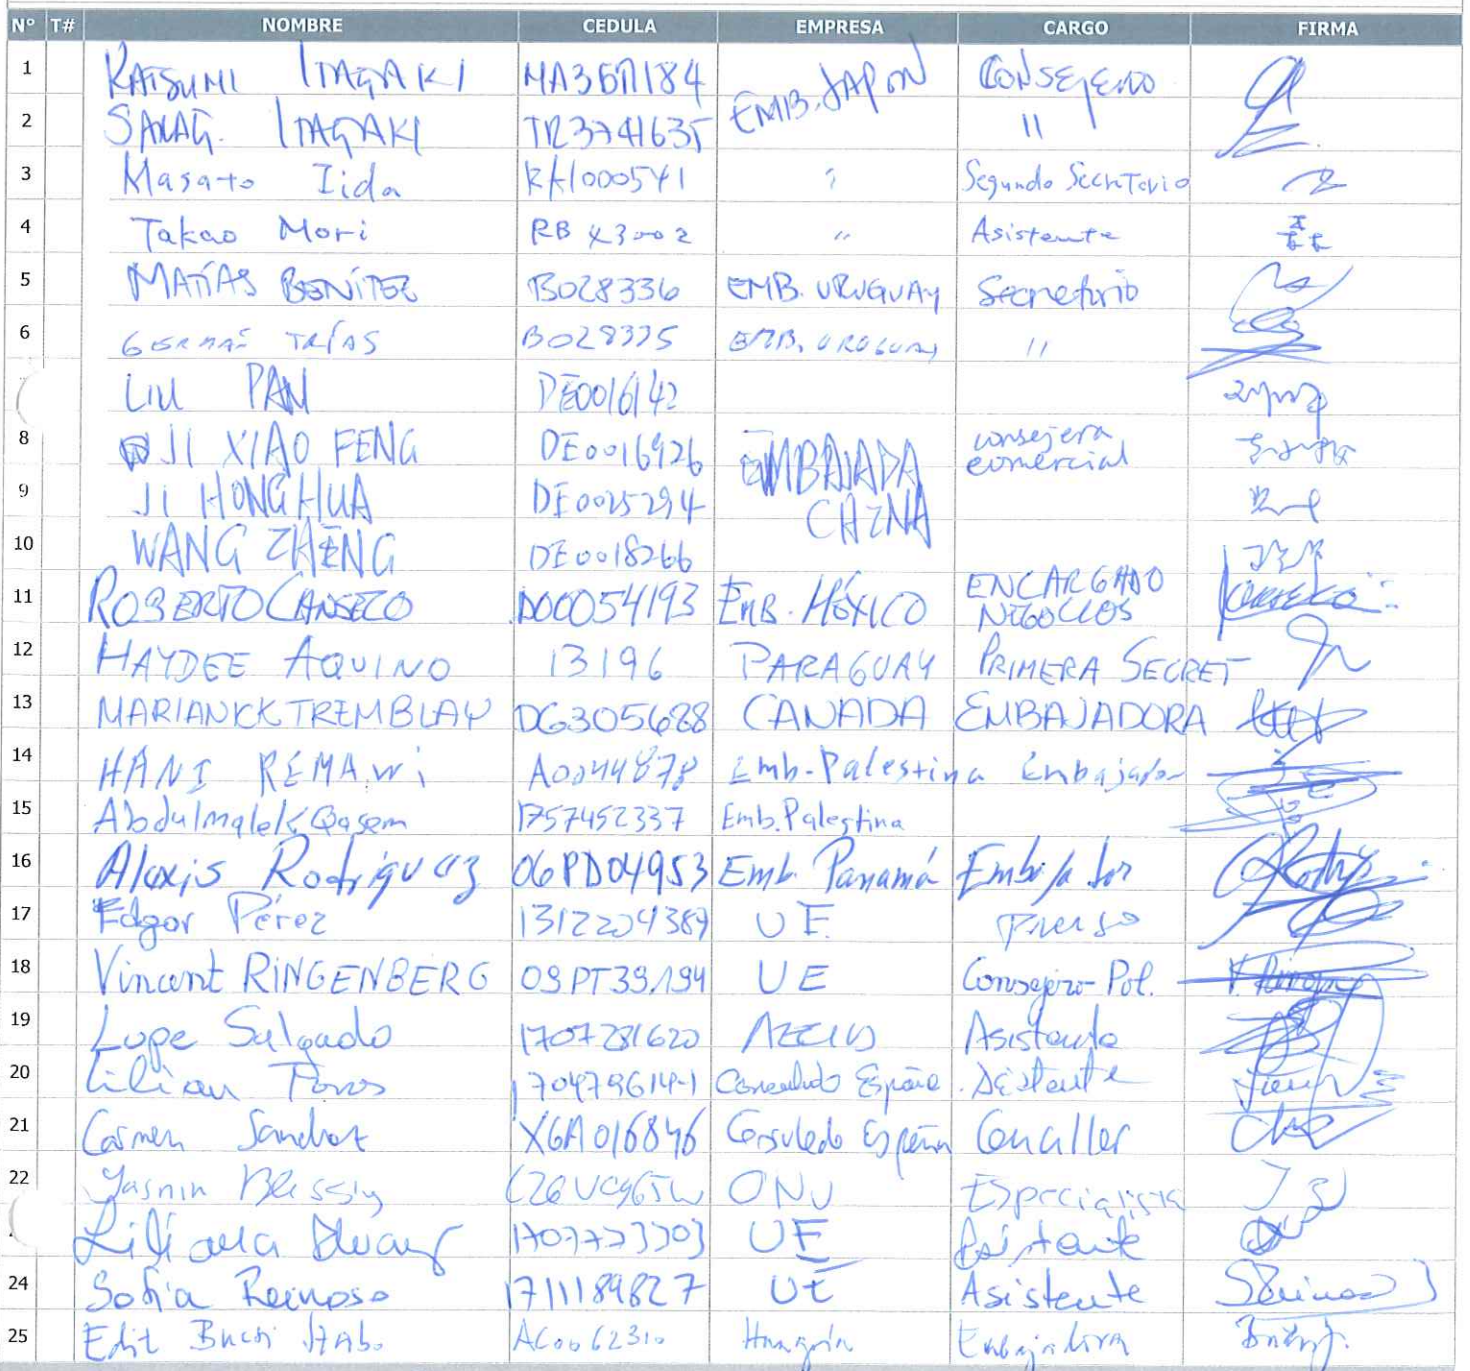 N° T# NOMBRE CEDULA EMPRESA CARGO FIRMA
1 KATSUMI ITAGAKI EMB. JAPON CONSEJERO
2 ITAGAKI TR3741635 "
3 Masato Iida Segundo Secretario
4 Takao Mori RB 43002 " Asistente
5 MATÍAS BENÍTEZ B028336 EMB. URUGUAY Secretario
6 GERMAN TRÍAS B028335 EMB. URUGUAY "
LIU PAN DE0016142
8 JI XIAO FENG DE0016926 EMBAJADA CHINA consejera comercial
9 JI HONGHUA DE0025294
10 WANG ZHENG DE0018266
11 ROBERTO CANSECO D00054193 EMB. MÉXICO ENCARGADO NEGOCIOS
12 HAYDEE AQUINO 13196 PARAGUAY PRIMERA SECRET
13 MARIANICK TREMBLAY DG305688 CANADA EMBAJADORA
14 HANI REMAWi A0044878 Emb-Palestina Embajador
15 Abdulmalek Qasem 1757452337 Emb. Palestina
16 Alexis Rodríguez 06PD04953 Emb. Panamá Embajador
17 Edgar Pérez UE Prensa
18 Vincent RINGENBERG UE Consejero-Pol.
19 Lupe Salgado 1707281620 AECID Asistente
20 Lilian Consulado España Asistente
21 Carmen Sanchez XGA016846 Consulado España Canciller
22 Yasmin ONU Especialista
Liliana UE Asistente
24 Sofia Reinoso 1711189827 UE Asistente
25 Edit Bucsi AC0062310 Hungría Embajadora